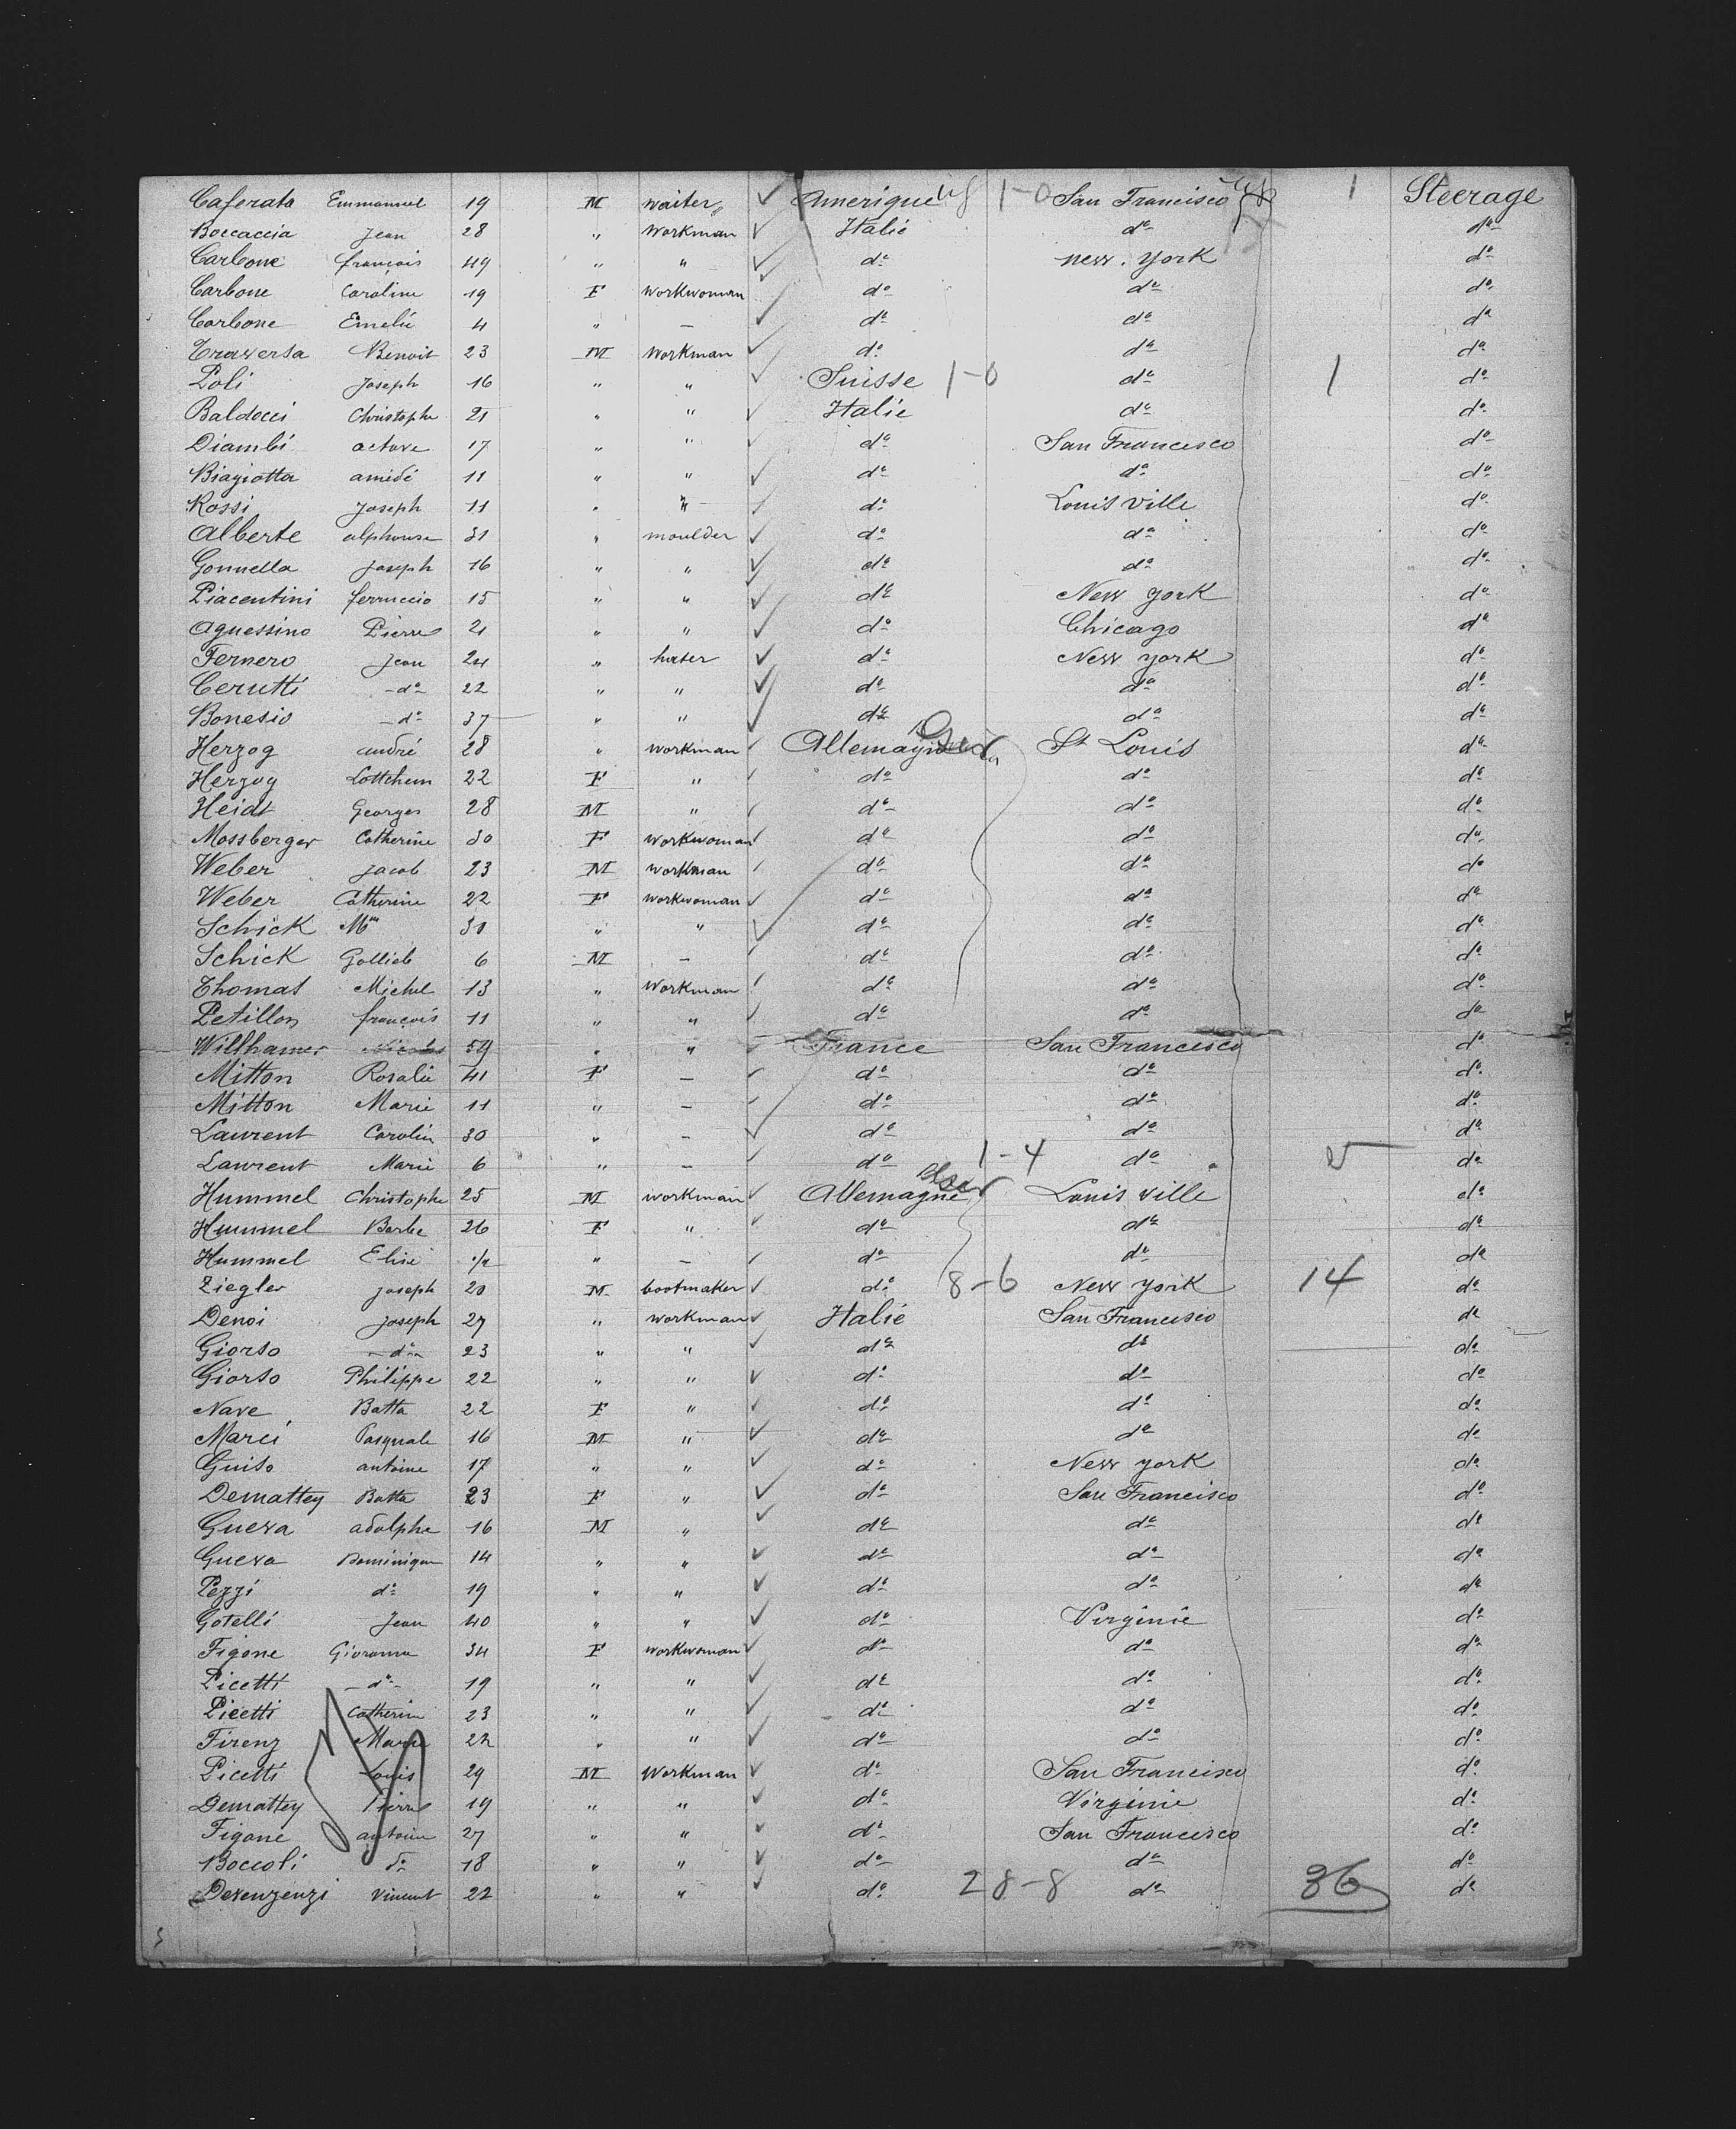 Caferata Emmanuel 19 M waiter Amerique US 1-0 San Francisco 1 Steerage
Boccaccia Jean 28 " workman Italie do do
Carbone françois 49 " " do new. york do
Carbone Caroline 19 F workwoman do do do
Carbone Emelie 4 " — do do do
Traversa Benoit 23 M workman do do do
Poli Joseph 16 " " Suisse 1-0 do 1 do
Baldocci Christophe 21 " " Italie do do
Diambi octave 17 " " do San Francisco do
Biagiotta amédé 11 " " do do do
Rossi Joseph 11 " " do Louis ville do
Alberte alphonse 31 " moulder do do do
Gonnella Joseph 16 " " do do do
Piacentini ferruccio 15 " " do New york do
Agnessino Pierre 21 " " do Chicago do
Fernero Jean 24 " hater do New york do
Cerutti do 22 " " do do do
Bonesio do 37 " " do do do
Herzog andré 28 " workman Allemagne St Louis do
Herzog Lottchen 22 F " do do do
Heidt Georges 28 M " do do do
Mossberger Catherine 30 F workwoman do do do
Weber Jacob 23 M workman do do do
Weber Catherine 22 F workwoman do do do
Schick Mme 31 " " do do do
Schick Gottlieb 6 M — do do do
Thomas Michel 13 " workman do do do
Petillon françois 11 " " do do do
Willhamer 59 " " France San Francisco do
Mitton Rosalie 41 F — do do do
Mitton Marie 11 " — do do do
Laurent Carolin 30 " — do do do
Laurent Marie 6 " — do 1-4 do 5 do
Hummel Christophe 25 M workman Allemagne Louis ville do
Hummel Barbe 26 F " do do do
Hummel Elise " — do do do
Ziegler Joseph 20 M bootmaker do 8-6 New york 14 do
Denoi Joseph 27 " workman Italie San Francisco do
Giorso do 23 " " do do do
Giorso Philippe 22 " " do do do
Nave Batta 22 F " do do do
Marci Pasquale 16 M " do do do
Guiso antoine 17 " " do New york do
Demattey Batta 23 F " do San Francisco do
Gueva adolphe 16 M " do do do
Gueva Dominique 14 " " do do do
Pezzi do 19 " " do do do
Gotelli Jean 40 " " do Virginie do
Figone Giovanna 34 F workwoman do do do
Picetti do 19 " " do do do
Picetti Catherine 23 " " do do do
Firenz Marie 22 " " do do do
Picetti Louis 29 M workman do San Francisco do
Demattey Pierre 19 " " do Virginie do
Figone antoine 27 " " do San Francisco do
Boccoli do 18 " " do do do
Devenzenzi Vincent 22 " " do 28-8 do 36 do